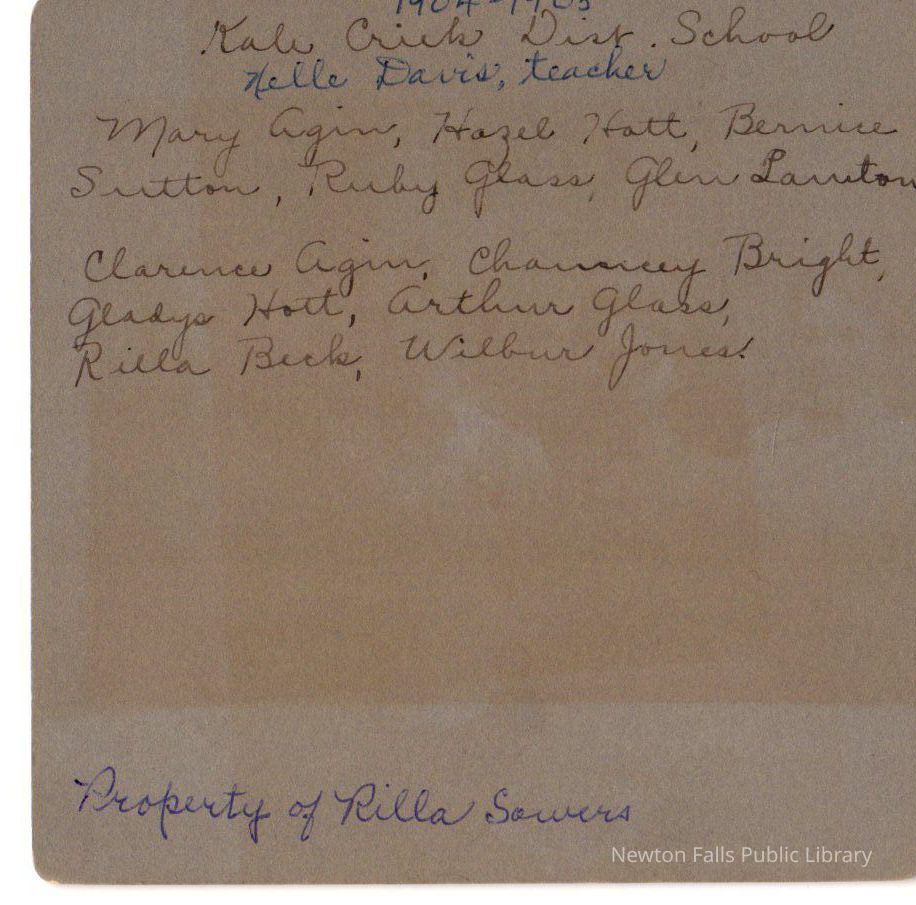 1904-1905
Kale Crick Dist. School
Nelle Davis, teacher
Mary Agin, Hazel Hott, Bernice
Sutton, Ruby Glass, Glen Lawton
Clarence Agin, Chauncey Bright,
Gladys Hott, Arthur Glass,
Rilla Beck, Wilbur Jones.
Property of Rilla Sowers
Newton Falls Public Library